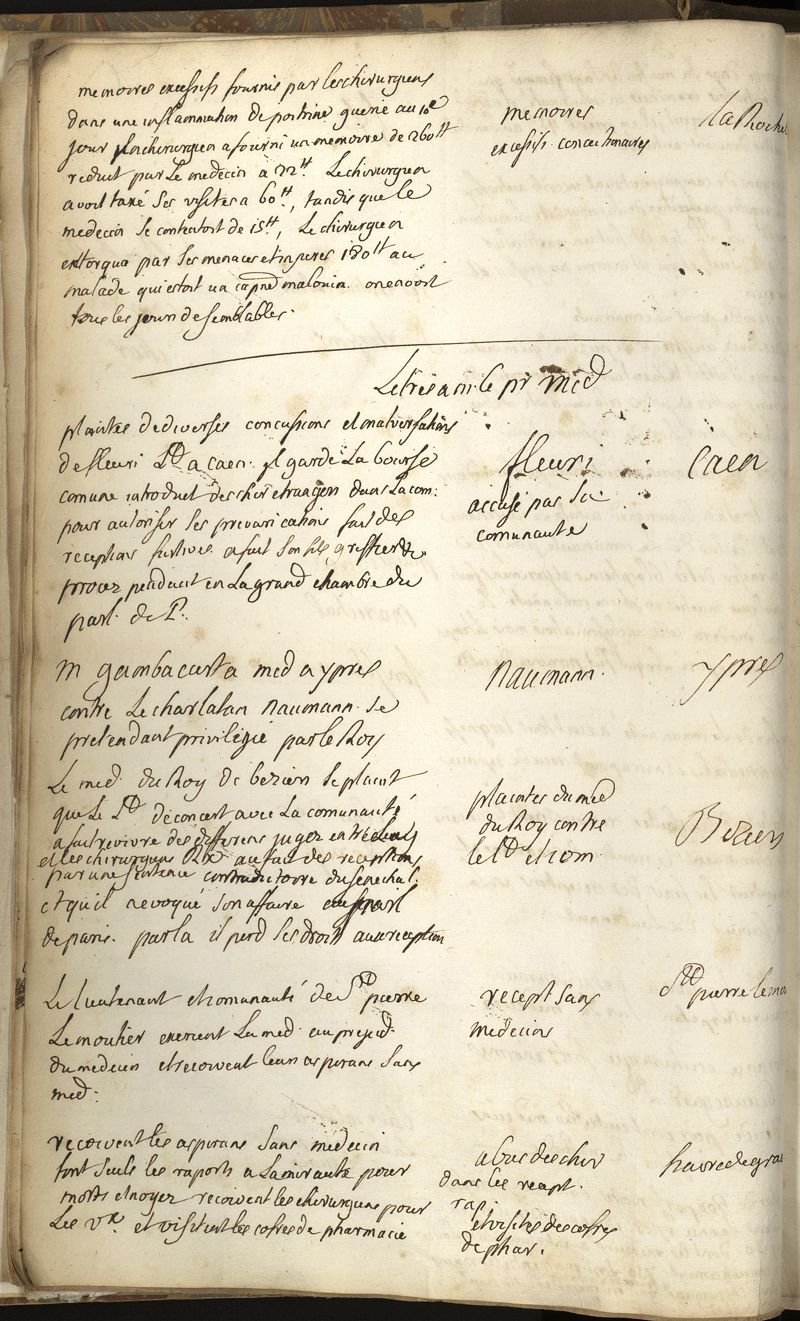 memoires excessifs fournis par les chirurgiens
dans une inflammation de poitrine guerie au 10e
jour un chirurgien a fourni un memoire de 260tt
reduit par le medecin a 22tt. Le chirurgien
avoit taxé ses visites a 60tt, tandis que le
medecin se contentoit de 15tt, Le chirurgien
extorqua par ses menaces et injures 180tt au
malade qui estoit un capne malouin. on en voit
tous les jours de semblables.
memoires
excessifs concutionaires
la Rochel
Lettres a m. le pr med
plaintes de diverses concussions et malversations
de fleuri Lt a caen. il garde La bourse
comune introduit des chir etrangers dans la com:
pour autoriser ses prevarications fait des
receptions furtives a fait son fils greffier
procez pendant en La grand chambre du
parl. de P.
fleuri
accusé par sa
comunauté
Caen
m gambacurta med a ypres
contre Le charlatan naumann se
pretendant privilegié par le Roy
naumann.
ypres
Le med. du Roy de beziers se plaint
que Le Lt de concert avec La comunauté
a fait revivre des differens jugez entre eux
et les chirurgiens au fait des receptions
par une sentence contradictoire du senechal.
et qu'il a evoqué son affaire au parl
de paris. par la il perd ses droits aux reception
plaintes du med
du Roy contre
le Lt et com.
Beziers
Le lieutenant et comunauté de St pierre
Le moutier exercent La med. au prejud.
du medecin et recoivent leurs aspirans sans
med.
recept sans
medecin
St pierre le mou
recoivent les aspirans sans medecin
font seuls les raports a Lamirauté pour
morts et noyez recoivent les chirurgiens pour
Les vx et visitent les cofres de pharmacie
abus des chir
dans les recept.
rap.
et visites des cofres
de phar.
havre de gra